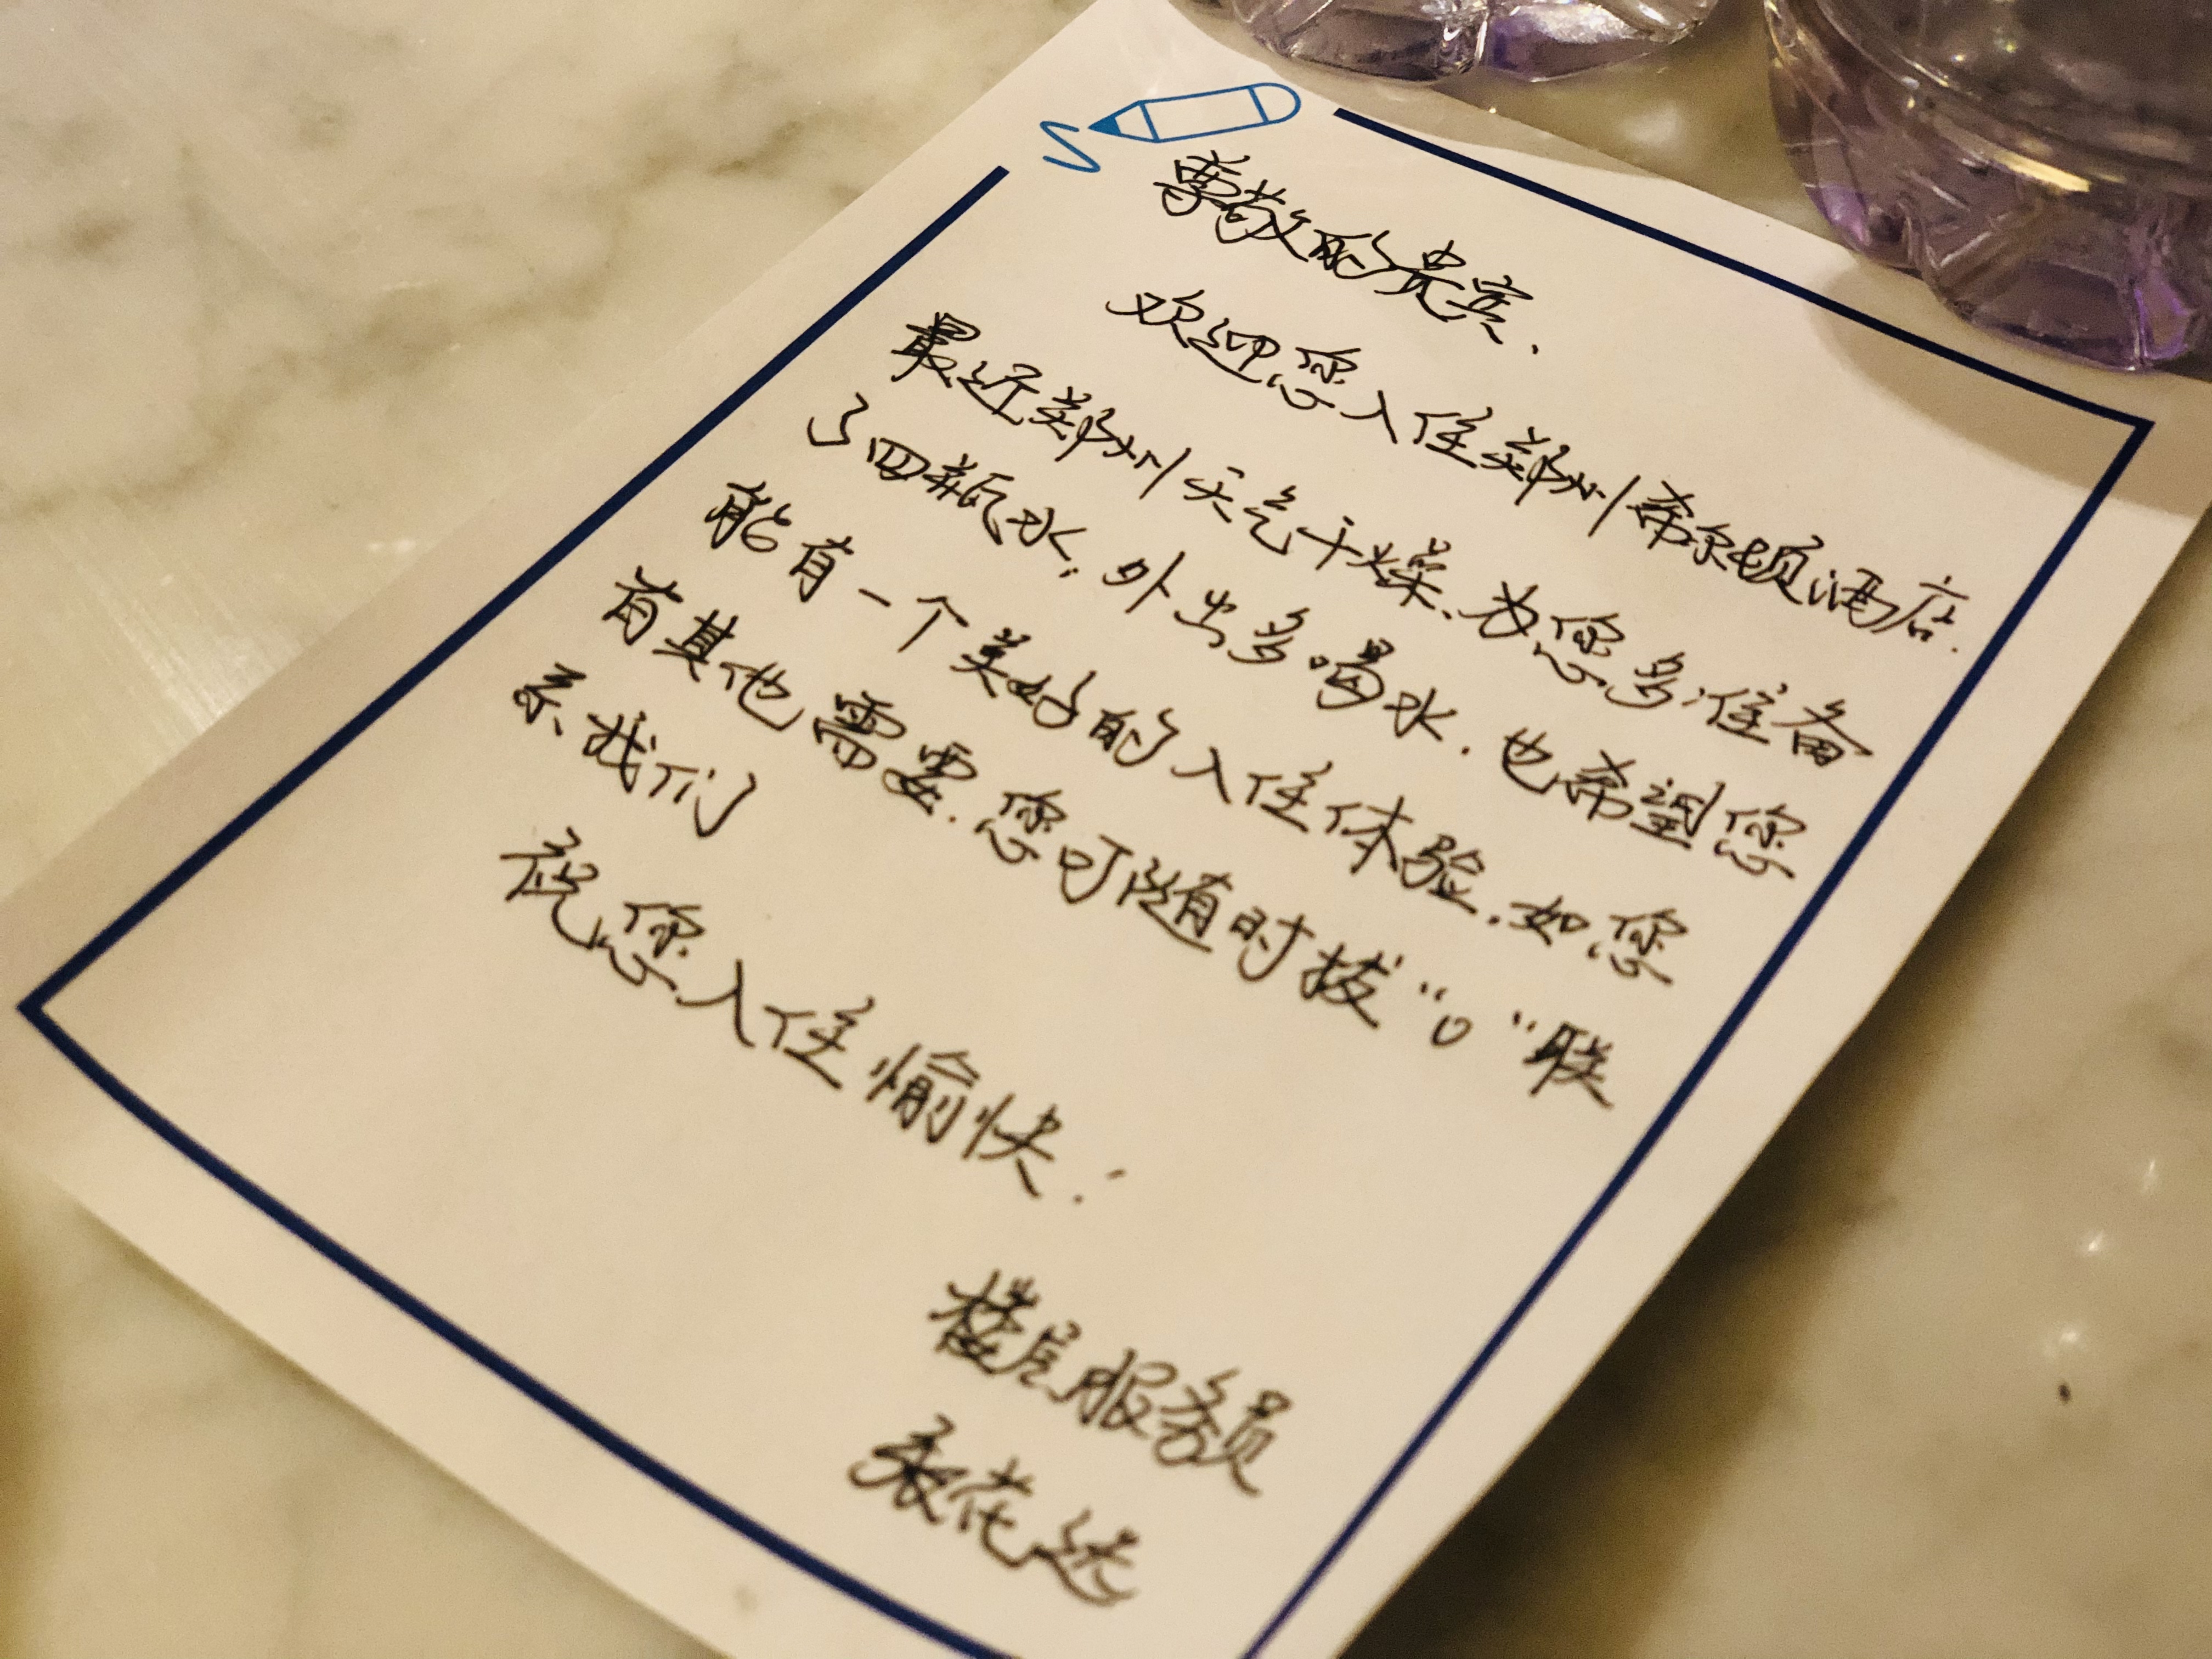 尊敬的贵宾.
欢迎您入住郑州希尔顿酒店.
最近郑州天气干燥.为您多准备
了四瓶水,外出多喝水.也希望您
能有一个美好的入住体验.如您
有其他需要.您可随时拨“0”联
系我们
祝您入住愉快!
楼层服务员
张花